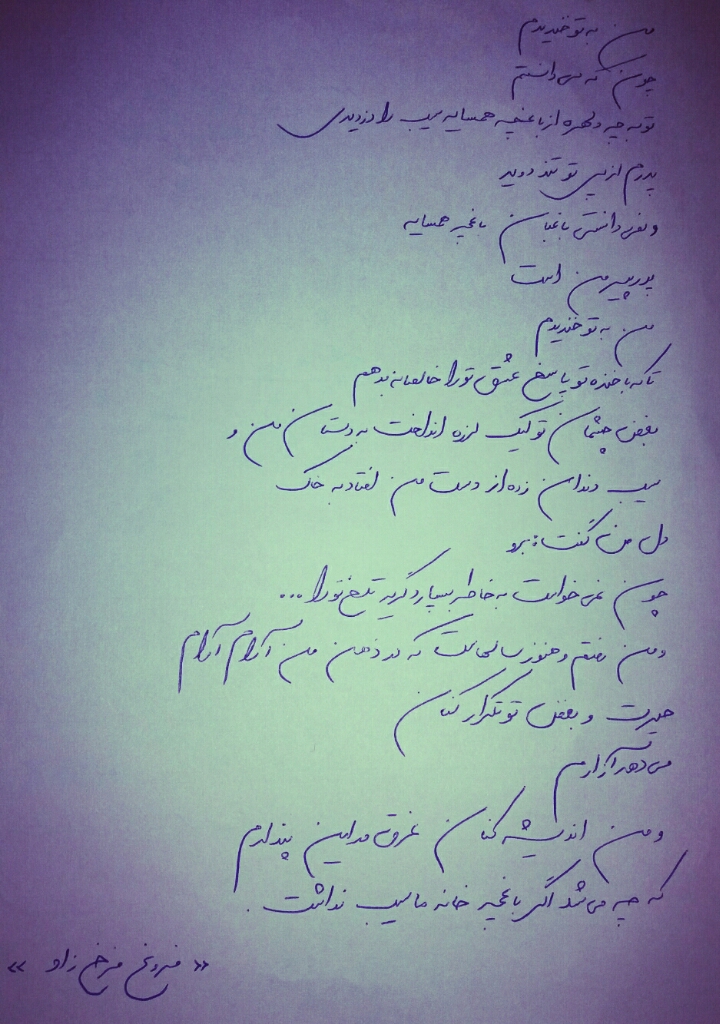 من به تو خندیدم
چون که می دانستم
تو به چه دلهره از باغچه همسایه سیب را دزدیدی
پدرم از پی تو تند دوید
و نمی دانستی باغبان باغچه همسایه
پدر پیر من است
من به تو خندیدم
تا که با خنده تو پاسخ عشق تو را خالصانه بدهم
بغض چشمان تو لیک لرزه انداخت به دستان من و
سیب دندان زده از دست من افتاد به خاک
دل من گفت: برو
چون نمی خواست به خاطر بسپارد گریه تلخ تو را ...
و من رفتم و هنوز سالهاست که در ذهن من آرام آرام
حیرت و بغض تو تکرار کنان
می دهد آزارم
و من اندیشه کنان غرق در این پندارم
که چه می شد اگر باغچه خانه ما سیب نداشت.
« فروغ فرخ زاد »